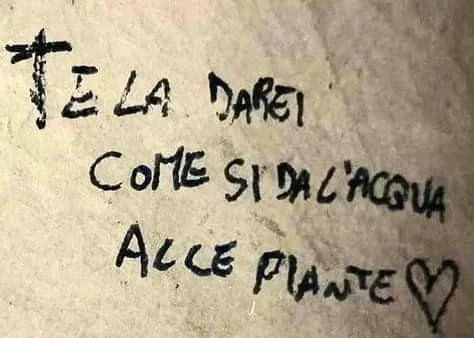 TE LA DAREI
COME SI DA L'ACQUA
ALLE PIANTE ♡